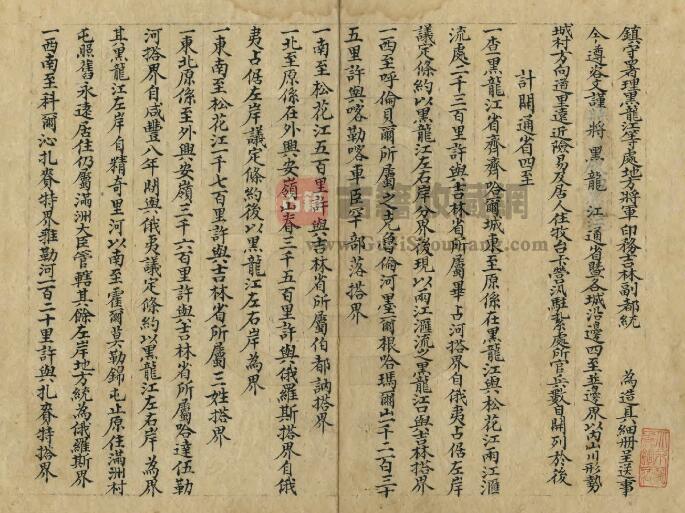 鎮守署理黑龍江等處地方將軍印務吉林副都統 為造具細冊呈送事
今遵咨文謹將黑龍江通省暨各城沿邊四至並邊界以內山川形勢
城村方向道里遠近險易及居人住牧台卡營汛駐紮處所官兵數目開列於後
計開通省四至
一查黑龍江省齊齊哈爾城東至原係在黑龍江與松花江兩江滙
流處二千三百里許與吉林省所屬畢占河搭界自俄夷占倨左岸
議定條約以黑龍江左右岸分界後現以兩江滙流之黑龍江口與吉林搭界
一西至呼倫貝爾所屬之克魯倫河墨爾根哈瑪爾山一千二百三十
五里許與喀勒喀車臣罕部落搭界
一南至松花江五百里許與吉林省所屬伯都訥搭界
一北至原係在外興安嶺山脊三千五百里許與俄羅斯搭界自俄
夷占倨左岸議定條約後以黑龍江左右岸為界
一東南至松花江一千七百里許與吉林省所屬三姓搭界
一東北原係至外興安嶺三千六百里許與吉林省所屬哈達伍勒
河搭界自咸豐八年間與俄夷議定條約以黑龍江左右岸為界
其黑龍江左岸自精奇里河以南至霍爾莫勒錦屯止原住滿洲村
屯照舊永遠居住仍屬滿洲大臣管轄其餘左岸地方統為俄羅斯界
一西南至科爾沁扎賚特界雅勒河一百二十里許與扎賚特搭界
古籍收藏網
www.GuJiShouCang.com